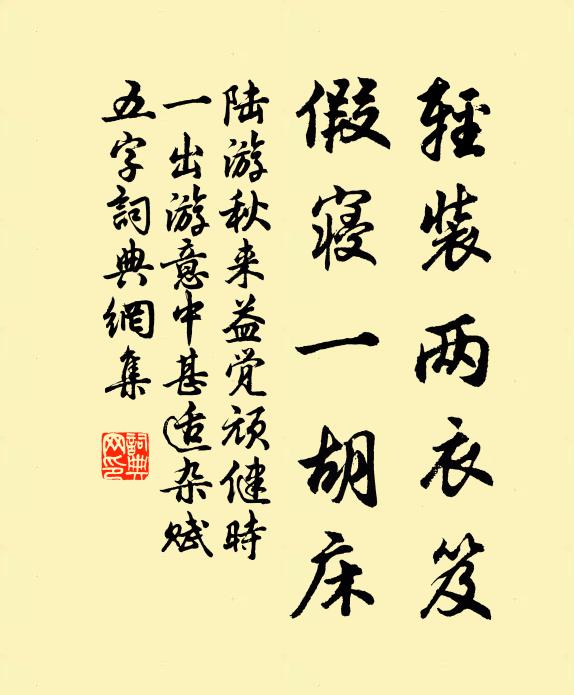 輕裝两衣笈
假寝一胡床
陆游秋来益觉顽健时
一出游意中甚适杂赋
五字詞典網集
詞典
网印